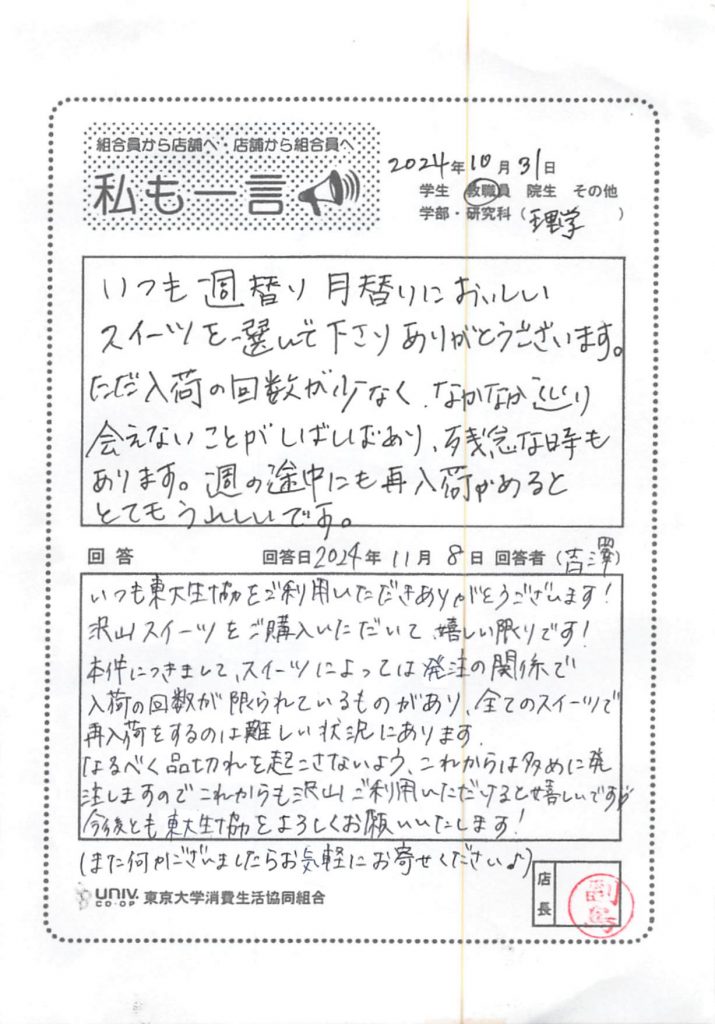 組合員から店舗へ・店舗から組合員へ
私も一言
2024年10月31日
学生 教職員 院生 その他
学部・研究科（理学）
いつも週替り月替りにおいしい
スイーツを選んで下さりありがとうございます。
ただ入荷の回数が少なく、なかなか巡り
会えないことがしばしばあり、残念な時も
あります。週の途中にも再入荷があると
とてもうれしいです。
回答 回答日2024年11月8日 回答者（吉澤）
いつも東大生協をご利用いただきありがとうございます！
沢山スイーツをご購入いただいて、嬉しい限りです！
本件につきまして、スイーツによっては発注の関係で
入荷の回数が限られているものがあり、全てのスイーツで
再入荷をするのは難しい状況にあります。
なるべく品切れを起こさないよう、これからは多めに発
注しますのでこれからも沢山ご利用いただけると嬉しいです♪
今後とも東大生協をよろしくお願いいたします！
(また何かございましたらお気軽にお寄せください♪)
UNIV. CO-OP 東京大学消費生活協同組合
店長